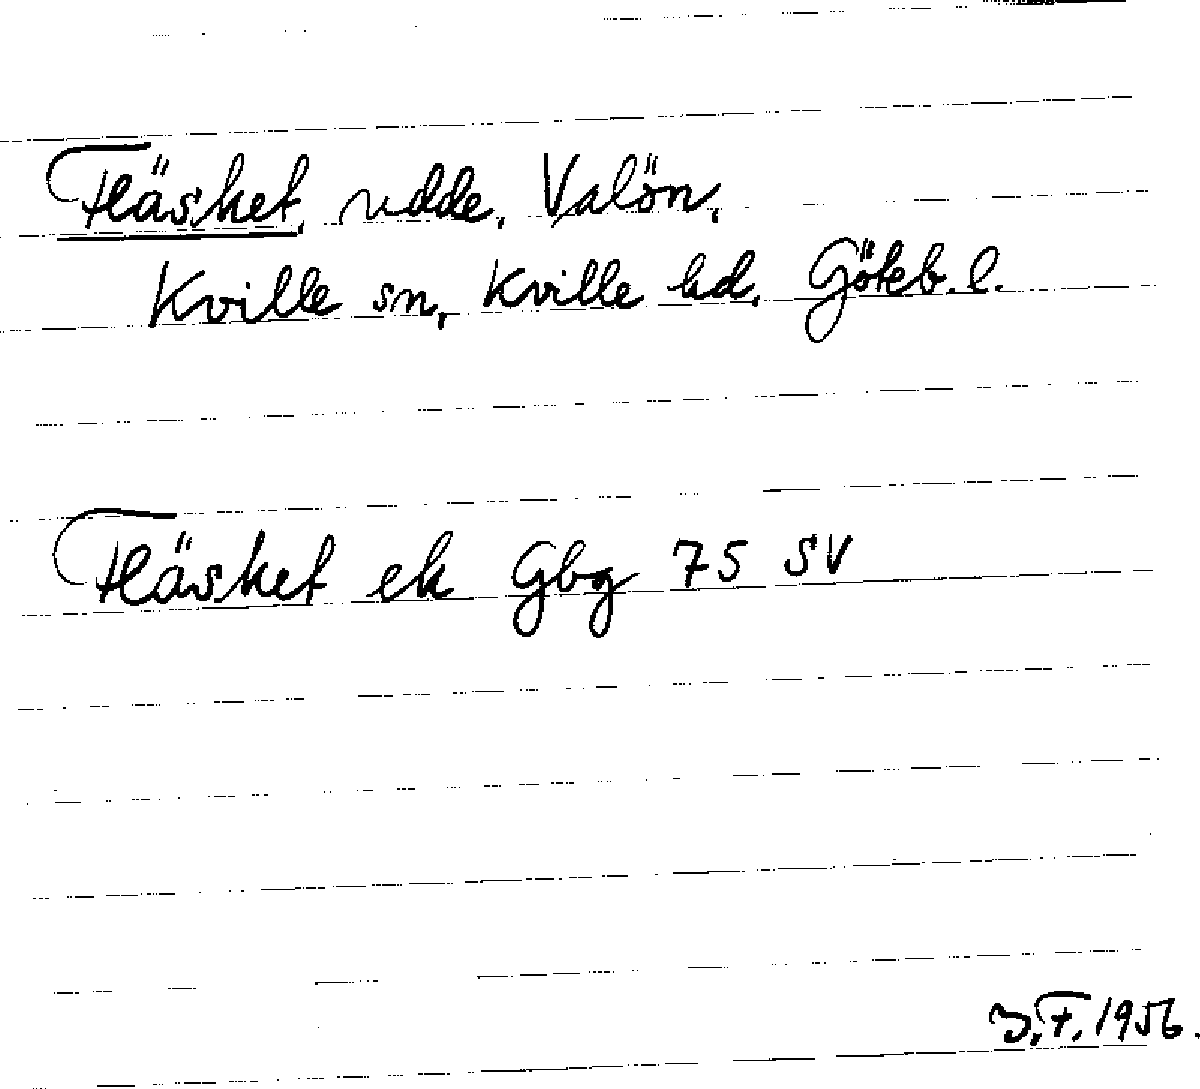 Fläsket, udde, Valön,
Kville sn, Kville hd, Göteb. l.
Fläsket ek Gbg 75 SV
F. 1956.